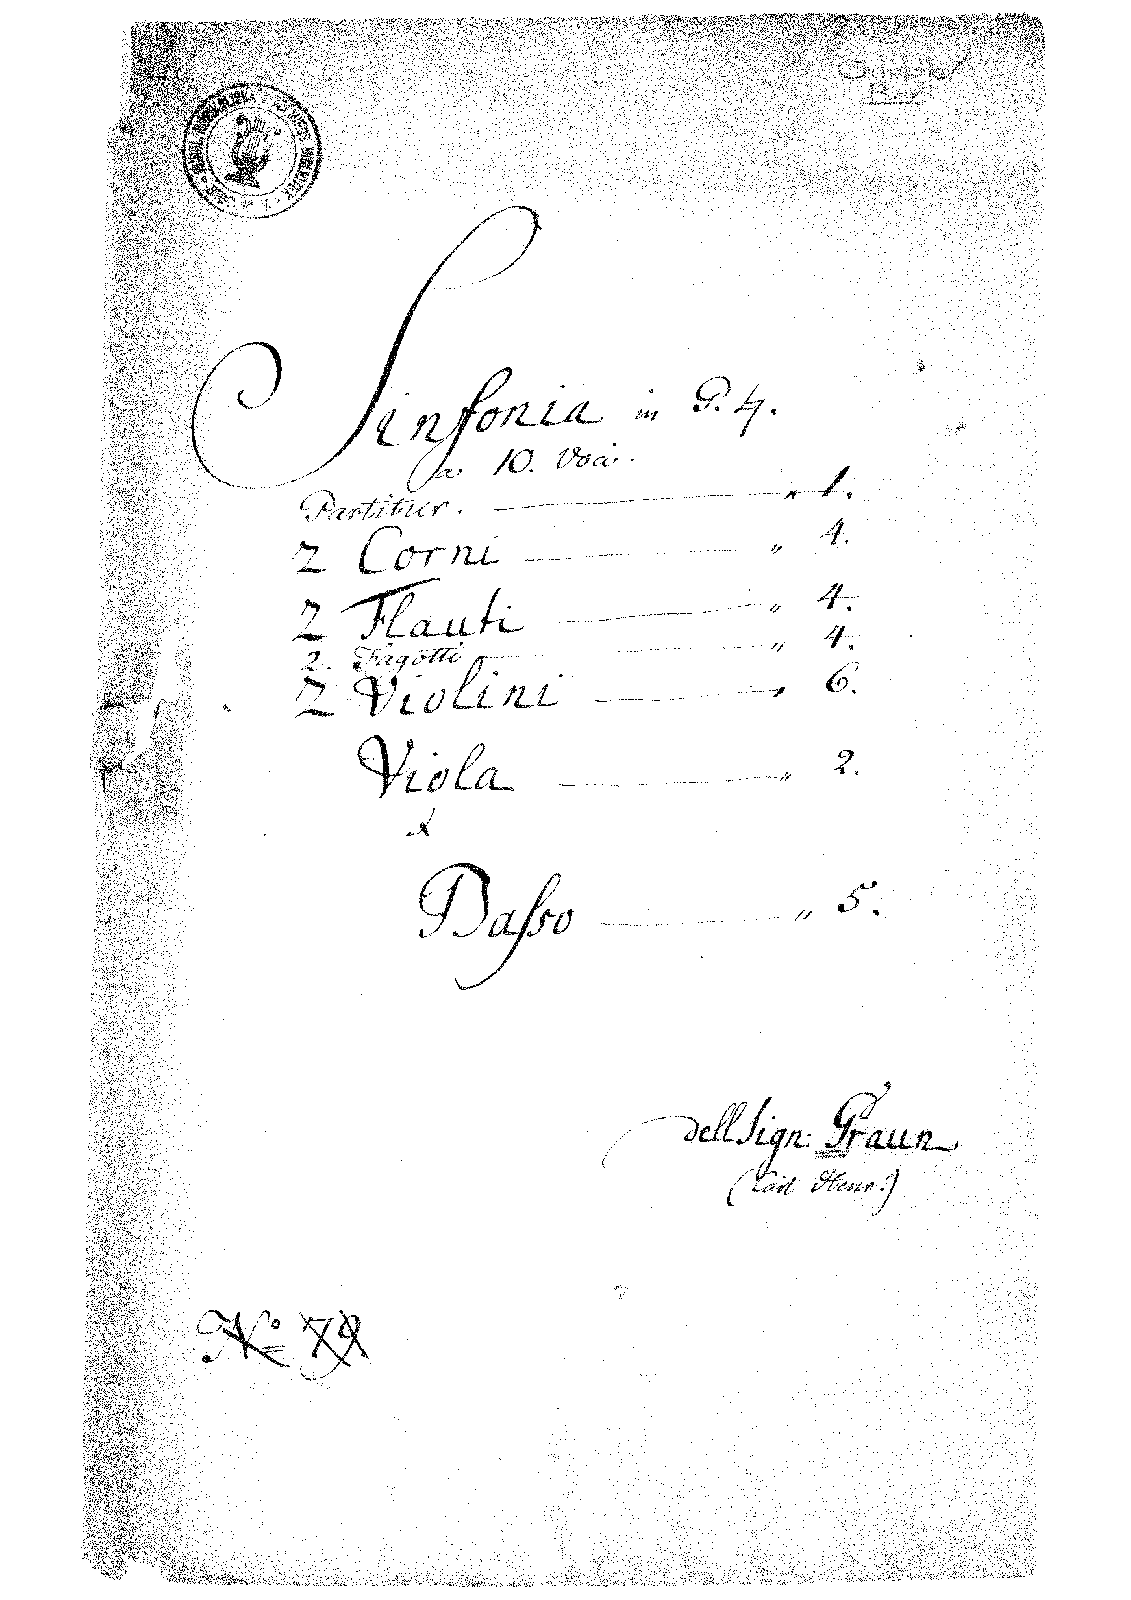 Sinfonia in G. ♮.
a 10. Voci.
Partitur. — „ 1.
2 Corni — „ 4.
2 Flauti — „ 4.
2. Fagotti — „ 4.
2 Violini — „ 6.
Viola — „ 2.
Basso — „ 5.
dell Sign: Graun
(Carl Henr:)
No 79